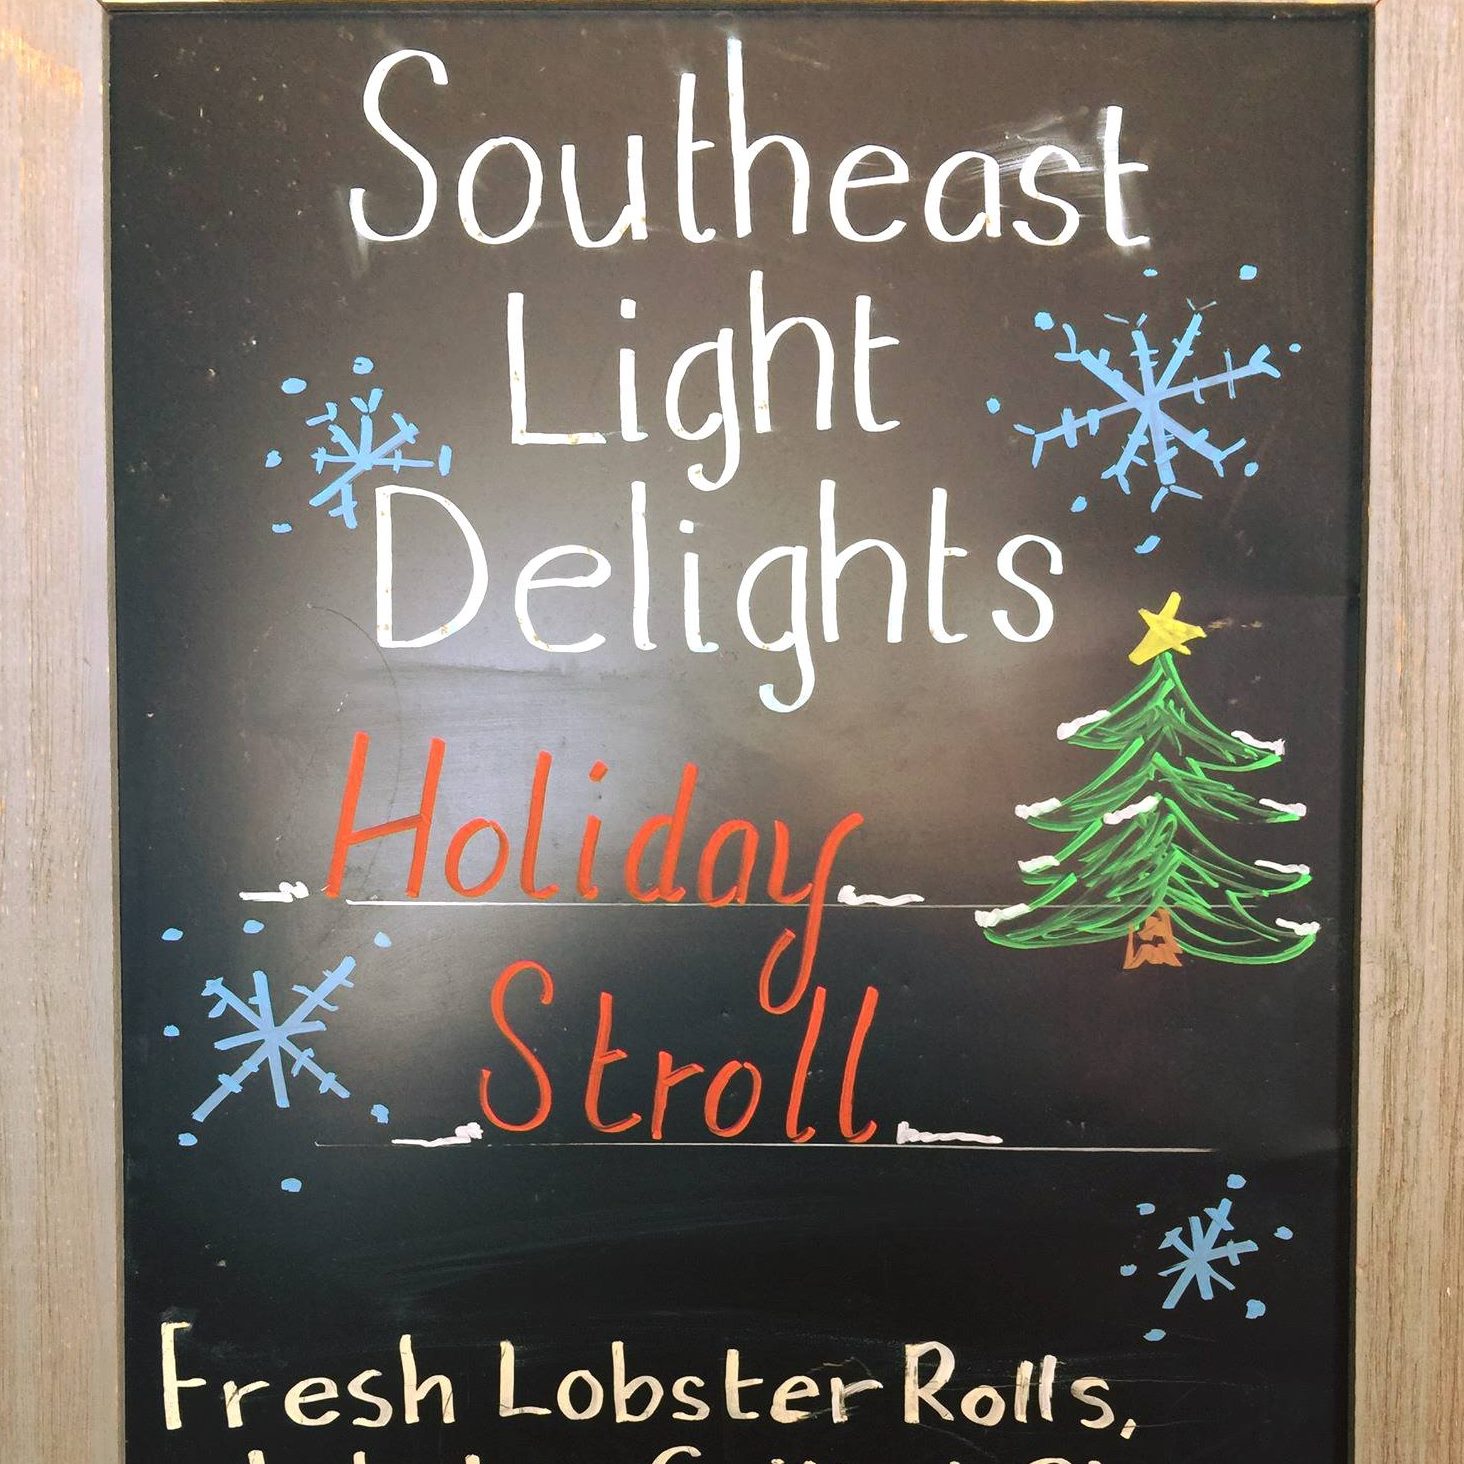 Southeast
Light
Delights
Holiday
Stroll
Fresh Lobster Rolls,